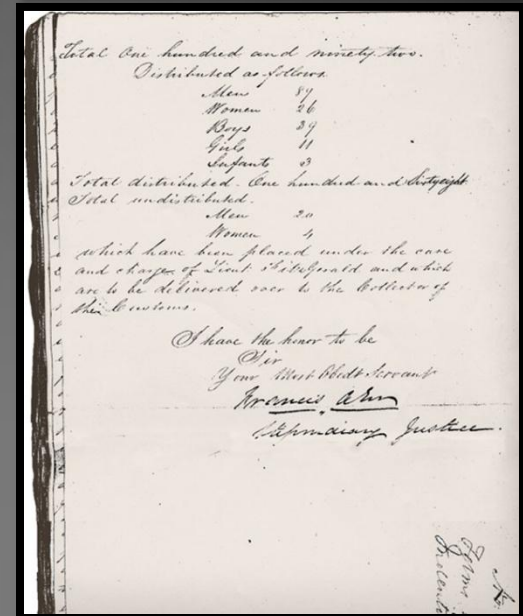 Total One hundred and ninety two.
Distributed as follows
Men 89
Women 26
Boys 39
Girls 11
Infants 3
Total distributed. One hundred and Sixtyeight
Total undistributed.
Men 20
Women 4
which have been placed under the care
and charge of Lieut FitzGerald and which
are to be delivered over to the Collector of
Customs.
I have the honor to be
Sir
Your Most Obedt Servant
Francis
Stipendiary Justice.
No.
Forms